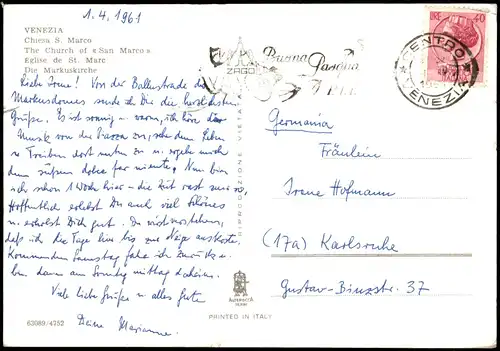 1.4.1961
VENEZIA
Chiesa S. Marco
The Church of « San Marco »
Eglise de St. Marc
Die Markuskirche
Liebe Irene! Von der Ballustrade des
Markusdomes aus Dir die herzlichsten
Grüße. Es ist sonnig u. warm, ich höre der
Musik von der Piazza zu, sehe dem Leben
u. Treiben dort unten zu u. ergebe mich
dem süßen dolce far niente. Nun bin
ich schon 1 Woche hier – die Zeit rast nur so,
Hoffentlich erlebst Du auch viel Schönes
u. erholst Dich gut. Du wirst verstehen,
daß ich die Tage hier bis zur Neige auskoste.
Kommenden Samstag fahre ich zurück u.
bin dann am Sonntag mittag daheim.
Viele liebe Grüße u. alles Gute
Deine Marianne.
63089/4752
ZAGO
RIPRODUZIONE VIETATA
PRINTED IN ITALY
Buona
Pasqua
LIRE 40
CENTRO
VENEZIA
Germania
Fräulein
Irene Hofmann
(17a) Karlsruhe
Gustav-Binzstr. 37